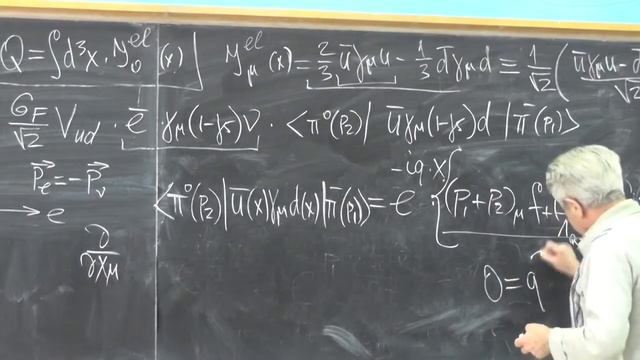 Q = ∫d³x · J₀ᵉˡ(x) | J_μᵉˡ(x) = 2/3 ūγ_μu − 1/3 d̄γ_μd ≡ 1/√2 ( ūγ_μu − d
√2
G_F/√2 V_ud · ē γ_μ(1−γ₅)ν · ⟨π⁰(p₂)| ūγ_μ(1−γ₅)d |π⁻(p₁)⟩
P⃗_e = −P⃗_ν
→ e
⟨π⁰(p₂)|ū(x)γ_μd(x)|π⁻(p₁)⟩ = e^{−iq·x} {(P₁+P₂)_μ f₊ +
∂/∂x_μ
0 = q